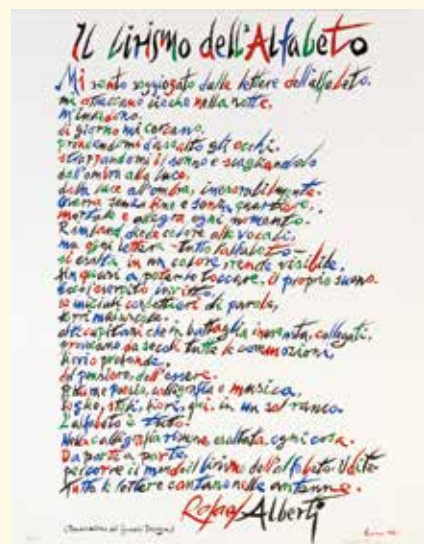 Il lirismo dell'Alfabeto
Mi sento soggiogato dalle lettere dell'alfabeto.
mi attaccano cieche nella notte,
m'invadono,
di giorno mi cercano,
prendendomi d'assalto gli occhi.
strappandomi il sonno e scagliandolo
dall'ombra alla luce,
dalla luce all'ombra, inesorabilmente.
Guerra senza fine e senza quartiere,
mortale e allegra ogni momento.
Rimbaud diede colore alle vocali,
ma ogni lettera -tutto l'alfabeto-
si esalta in un colore, rende visibile,
fin quasi a poterlo toccare, il proprio suono.
esercito invitto,
le iniziali condottiere di parole,
terri maiuscole.
alti capitani che in battaglia collegati,
provocano da secoli tutte le commozioni,
brivio profondo.
del pensiero, dell'essere.
poesia, calligrafia e musica,
segni, stili, fiori, qui, in un sol ramo.
L'alfabeto è tutto.
Nella calligrafia risuona esaltata, ogni cosa.
Da parte a parte,
percorre il mondo il lirismo dell'alfabeto. Udite.
Tutte le lettere cantano nelle antenne.
Rafael Alberti